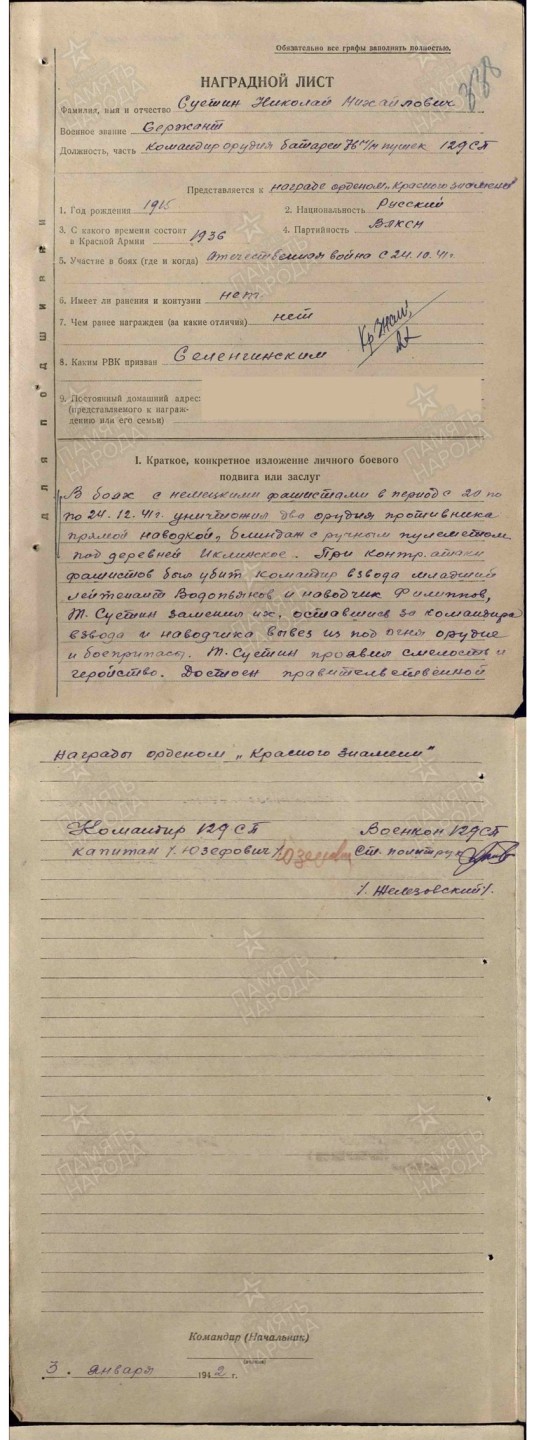 Обязательно все графы заполнять полностью.
НАГРАДНОЙ ЛИСТ
Фамилия, имя и отчество Суетин Николай Михайлович
Военное звание Сержант
Должность, часть командир орудия батареи 76 м/м пушек 129 СП
Представляется к награде орденом „Красного знамени"
1. Год рождения 1915 2. Национальность Русский
3. С какого времени состоит в Красной Армии 1936 4. Партийность
5. Участие в боях (где и когда) Отечественная война с 24.10.41г
6. Имеет ли ранения и контузии нет.
7. Чем ранее награжден (за какие отличия) нет
Кр Знам.
8. Каким РВК призван Селенгинским
9. Постоянный домашний адрес:
(представляемого к награждению или его семьи)
Для подшивки
I. Краткое, конкретное изложение личного боевого
подвига или заслуг
В боях с немецкими фашистами в период с 20 по
по 24.12.41г. уничтожил два орудия противника
прямой наводкой, блиндаж с ручным пулеметом
под деревней Иклинское. При контр.атаки
фашистов был убит командир взвода младший
лейтенант Водопьянов и наводчик Филиппов,
Т. Суетин заменил их, оставшись за командира
взвода и наводчика вывез из под огня орудие
и боеприпасы. Т. Суетин проявил смелость и
геройство. Достоен правительственной
награды орденом „Красного знамени"
Командир 129 СП Военком 129 СП
капитан /.Юзефович/ Ст. политрук
/.Железовский/.
Командир (Начальник)
3. января 1942 г.
ПАМЯТЬ НАРОДА